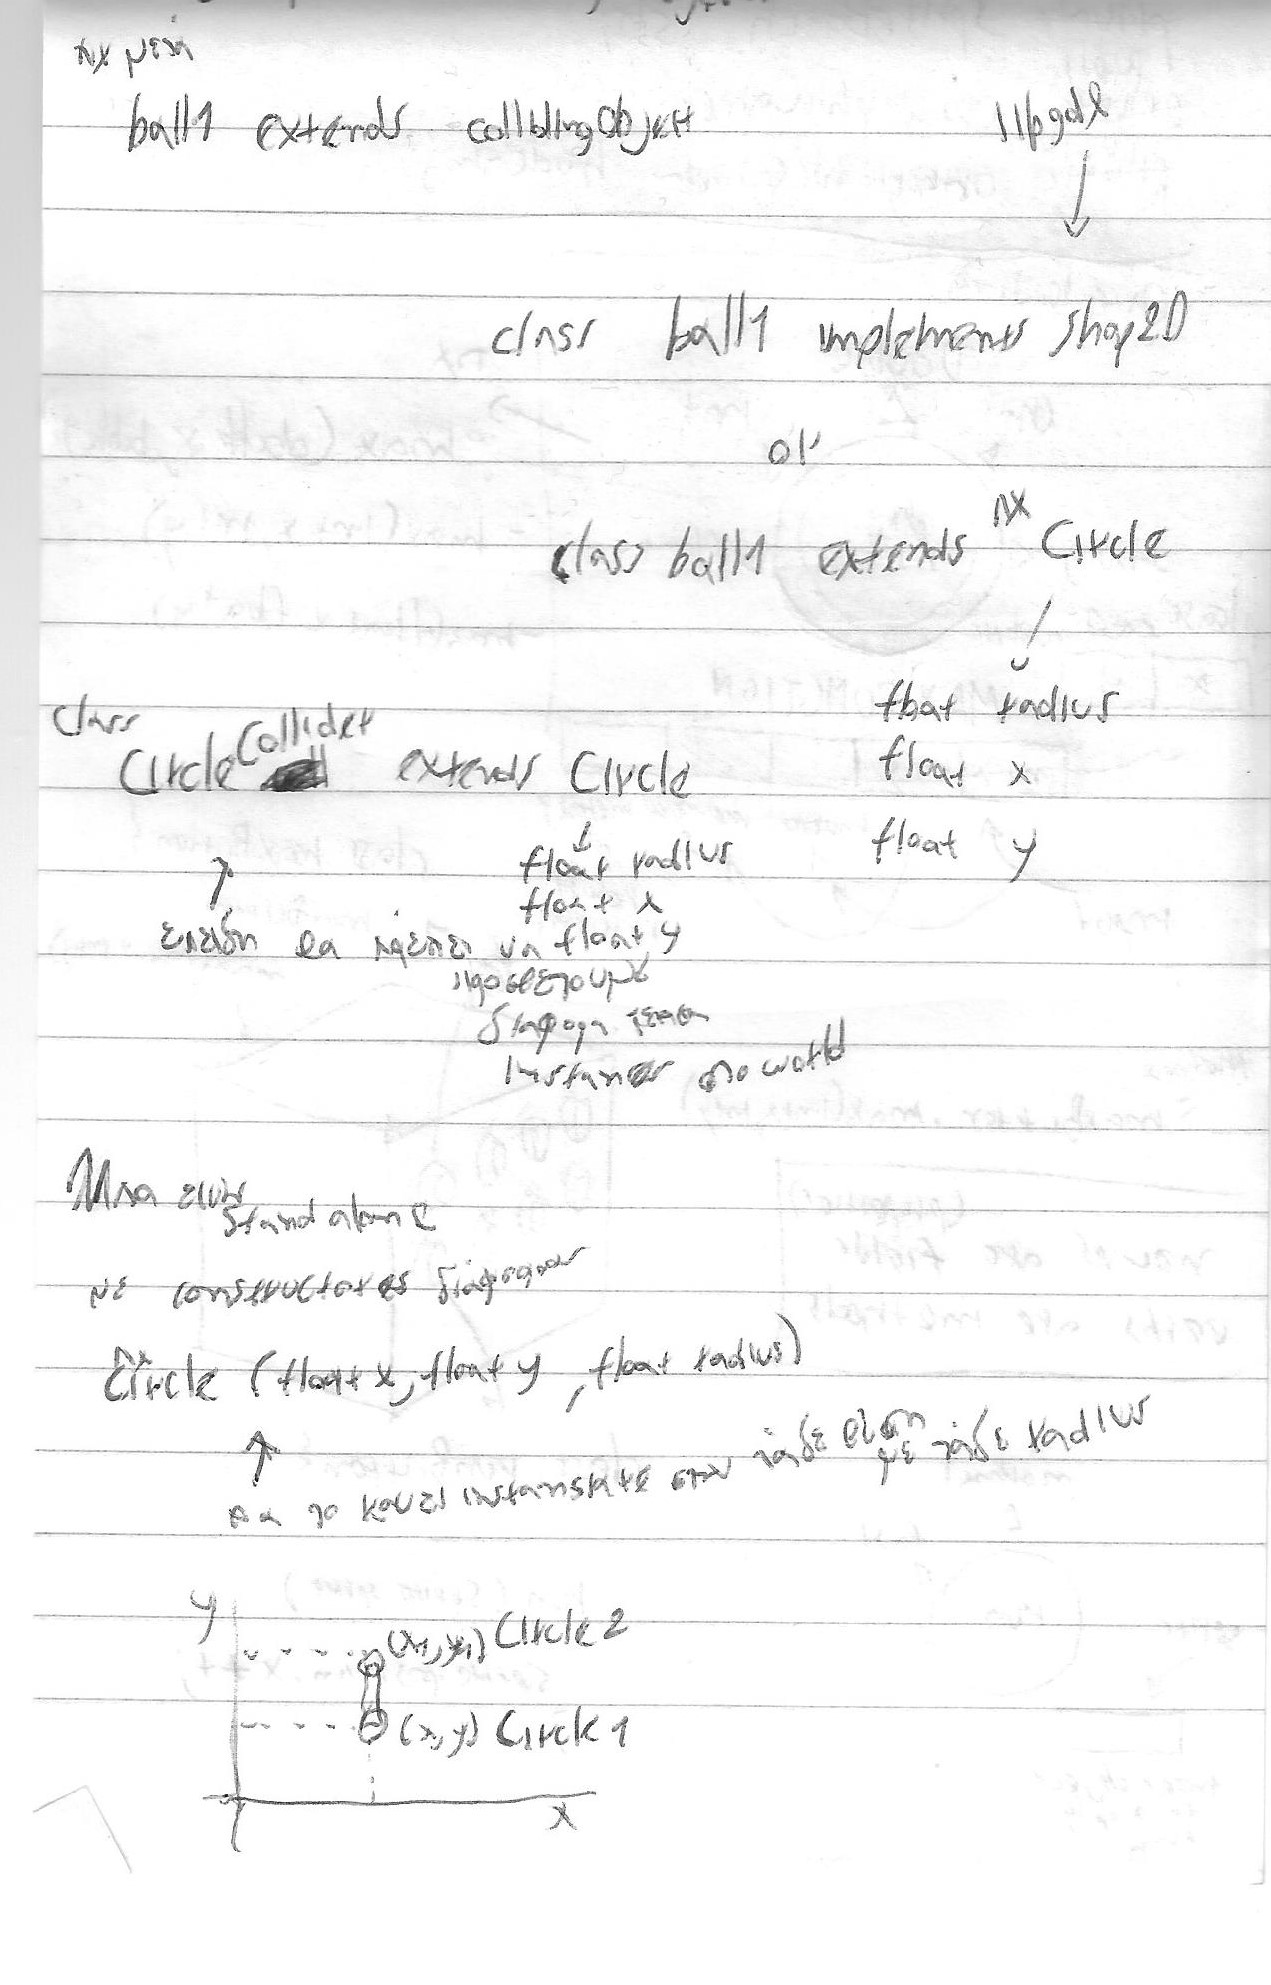 πχ μετά
ball1 extends collidingObject
libgdx
class ball1 implements Shap2D
or
class ball1 extends πχ Circle
float radius
float x
float y
class
Circle Collider extends Circle
float radius
float x
float y
επειδή θα πρέπει να
προσθέτουμε
διάφορα τέτοια
instances στο world
Μπα είναι
standalone
με constructores διάφορους
πχ
Circle (float x, float y, float radius)
θα το κάνει instantiate στην τάδε θέση
με τάδε radius
y
(x1, y1) Circle 2
(x, y) Circle 1
x